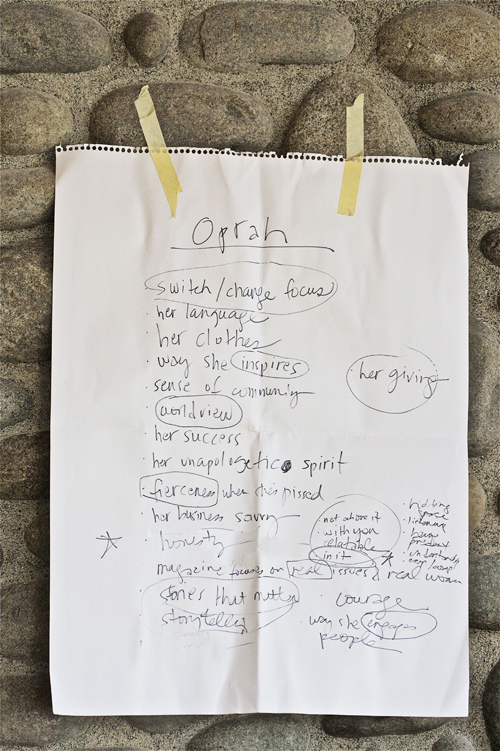 Oprah
switch/change focus
· her language
· her clothes
· way she inspires
· her giving
· sense of community
· worldview
· her success
· her unapologetic spirit
· fierceness when she's pissed
· her business savvy
· honesty
magazine focuses on real issues & real women
stories that matter
storytelling
· not above it
· with you
relatable
in it
· holding
space
· listening
· being
present
· courage
way she engages
people